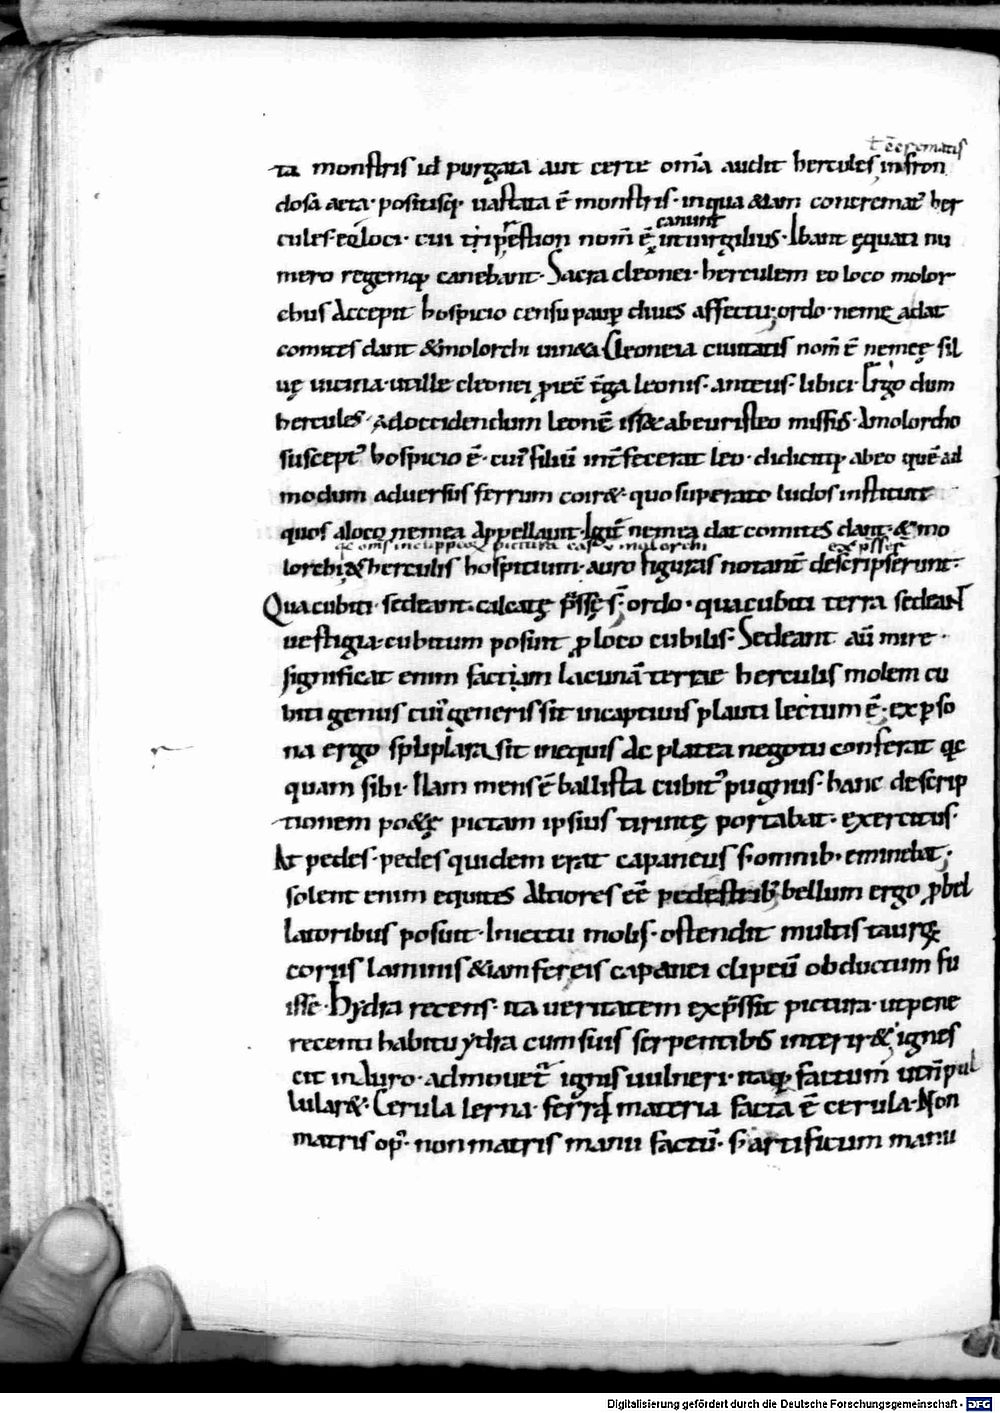 ta monstris id purgata aut certe om̄a audit hercules in fron
dosa aeta· positisq; uastata ē monstris· in qua etiam concremat᾽ her
canunt
cules· eq̨ loci· cui nom̄ ē ut uirgilius· Ibant ęquati nu
mero regemq; canebant· Sacra cleonei· herculem eo loco molor
chus Accepit hospicio censu paup diues affectu; ordo· nemeę adat
comites dant & molorchi uinea· Cleoneia ciuitatis nom̄ ē nemeę sil
uę uicina· ut ille cleonei leonis· anteus· libici· Ergo dum
hercules· ad occidendum leonē isset ab euristeo missus· A molorcho
suscept᾽ hospicio ē· cui᾽ filiū int̄fecerat leo· didicitq; ab eo quē ad
modum aduersus ferrum coiret· quo superato ludos instituit
quos a loco nemea Appellauit· Igit̄ nemea dat comites dant· & mo
pictura molorchi exp̄sses
lorchi & herculis hospitium· auro figuras notant̄ descripserunt·
Qua cubiti· sedeant· calcatę p̄ssę s̄· ordo· qua cubiti terra sedeant
uestigia· cubitum posuit p loco cubilis· Sedeant aū mire·
significat enim factam lacunā terrae herculis molem cu
biti genus cui᾽ generis sit in captiuis plauti lectum ē· ex pso
na ergo sit inequis de platea negotii conferat qc
quam sibi· Nam mens ē ballista cubit᾽ pugnus· hanc descrip
tionem poetę pictam ipsius tirintę portabat· exercitus·
At pedes· pedes quidem erat capaneus s; omnib; eminebat;
solent enim equites Altiores eē pedestrib; bellum ergo p bel
latoribus posuit· Inuectu molis· ostendit multis taurę
coriis laminis & iam fereis capanei clipeū obductum fu
isse· Hydra recens· ita ueritatem exp̄ssit pictura· ut pene
recenti habitu ydra cum suis serpentibus interiret ignes
cit in duro· admouet᾽ ignis uulneri· itaq; factum ut n̄ pul
lularet· Cerula lerna· ferri materia facta ē cerula· Non
matris op᾽· non matris manu factū· s; artificum manu
Digitalisierung gefördert durch die Deutsche Forschungsgemeinschaft - DFG